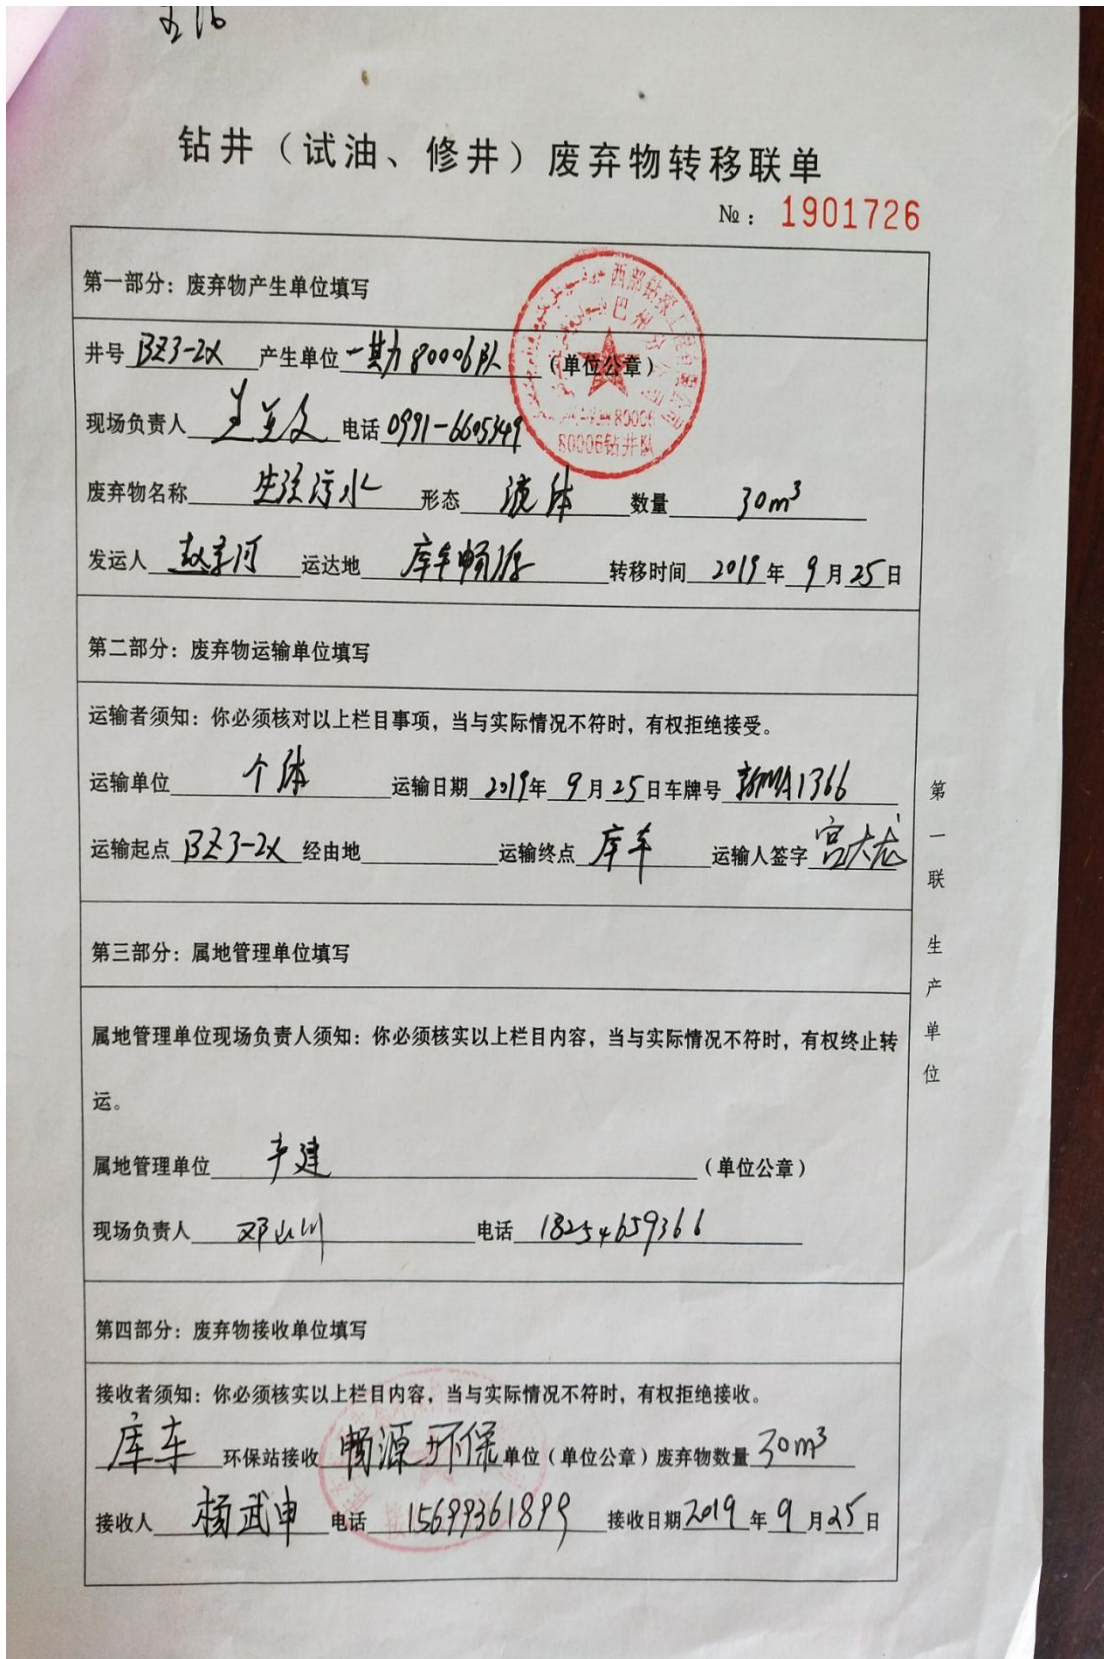 钻井（试油、修井）废弃物转移联单
№：1901726
第一部分：废弃物产生单位填写
井号 BZ3-2X 产生单位 一勘80006队 （单位公章）
西部钻探工程有限公司
巴州分公司
80006
80006钻井队
现场负责人 电话 0991-6605349
废弃物名称 生活污水 形态 液体 数量 30m³
发运人 赵宗河 运达地 库车畅源 转移时间 2019年9月25日
第二部分：废弃物运输单位填写
运输者须知：你必须核对以上栏目事项，当与实际情况不符时，有权拒绝接受。
运输单位 个体 运输日期 2019年9月25日车牌号 新MA1366
运输起点 BZ3-2X 经由地 运输终点 库车 运输人签字 宫大龙
第三部分：属地管理单位填写
属地管理单位现场负责人须知：你必须核实以上栏目内容，当与实际情况不符时，有权终止转
运。
属地管理单位 产建 （单位公章）
现场负责人 邓山川 电话 18254659366
第四部分：废弃物接收单位填写
接收者须知：你必须核实以上栏目内容，当与实际情况不符时，有权拒绝接收。
库车 环保站接收 畅源环保 单位（单位公章）废弃物数量 30m³
接收人 杨武申 电话 15699361899 接收日期 2019年9月25日
第一联 生产单位